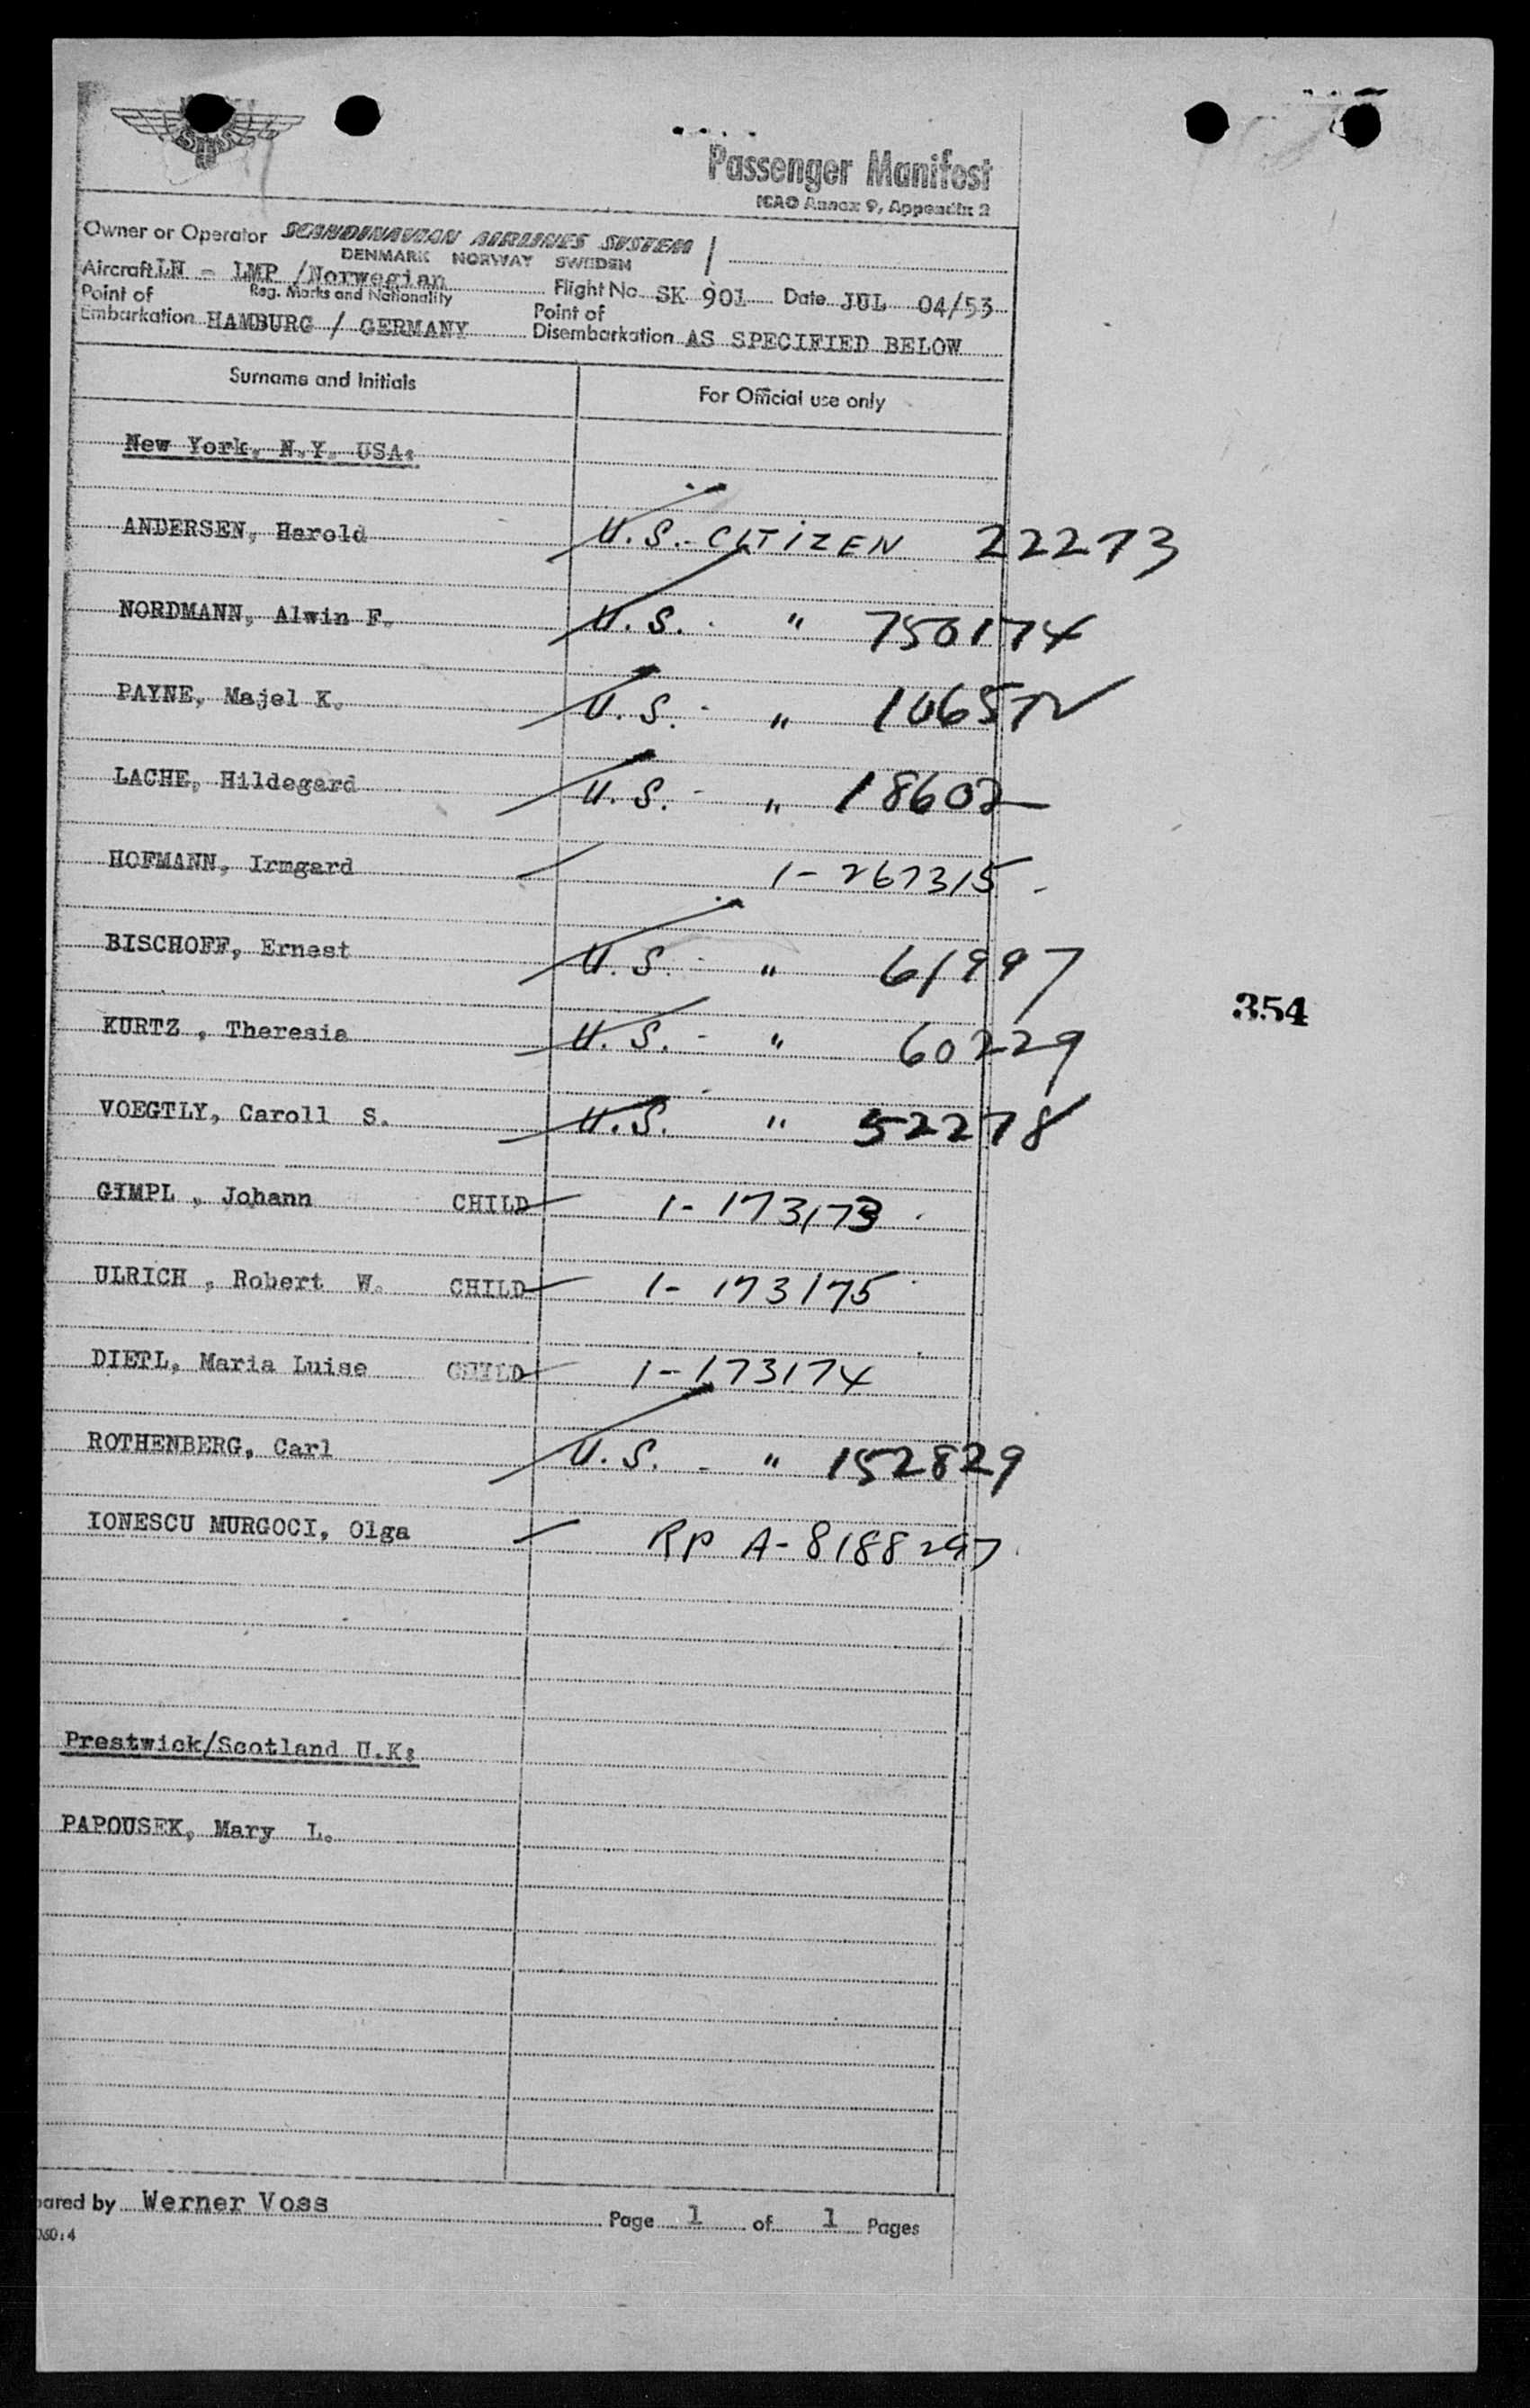 SAS
Passenger Manifest
ICAO Annex 9, Appendix 2
Owner or Operator SCANDINAVIAN AIRLINES SYSTEM
DENMARK NORWAY SWEDEN
Aircraft LN - LMP /Norwegian Flight No. SK 901 Date JUL 04/53
Reg. Marks and Nationality
Point of Embarkation HAMBURG / GERMANY Point of Disembarkation AS SPECIFIED BELOW
Surname and Initials For Official use only
New York, N.Y. USA:
ANDERSEN, Harold U.S. - CITIZEN 22273
NORDMANN, Alwin F. U.S. - " 750174
PAYNE, Majel K. U.S. - "
LACHE, Hildegard U.S. - " 18602
HOFMANN, Irmgard 1-267315
BISCHOFF, Ernest U.S. - " 61997
354
KURTZ , Theresia U.S. - " 60229
VOEGTLY, Caroll S. U.S. " 52278
GIMPL , Johann CHILD 1-173173
ULRICH , Robert W. CHILD 1-173175
DIETL, Maria Luise CHILD 1-173174
ROTHENBERG, Carl U.S. - " 152829
IONESCU MURGOCI, Olga RP A-8188297
Prestwick/Scotland U.K:
PAPOUSEK, Mary L.
pared by Werner Voss Page 1 of 1 Pages